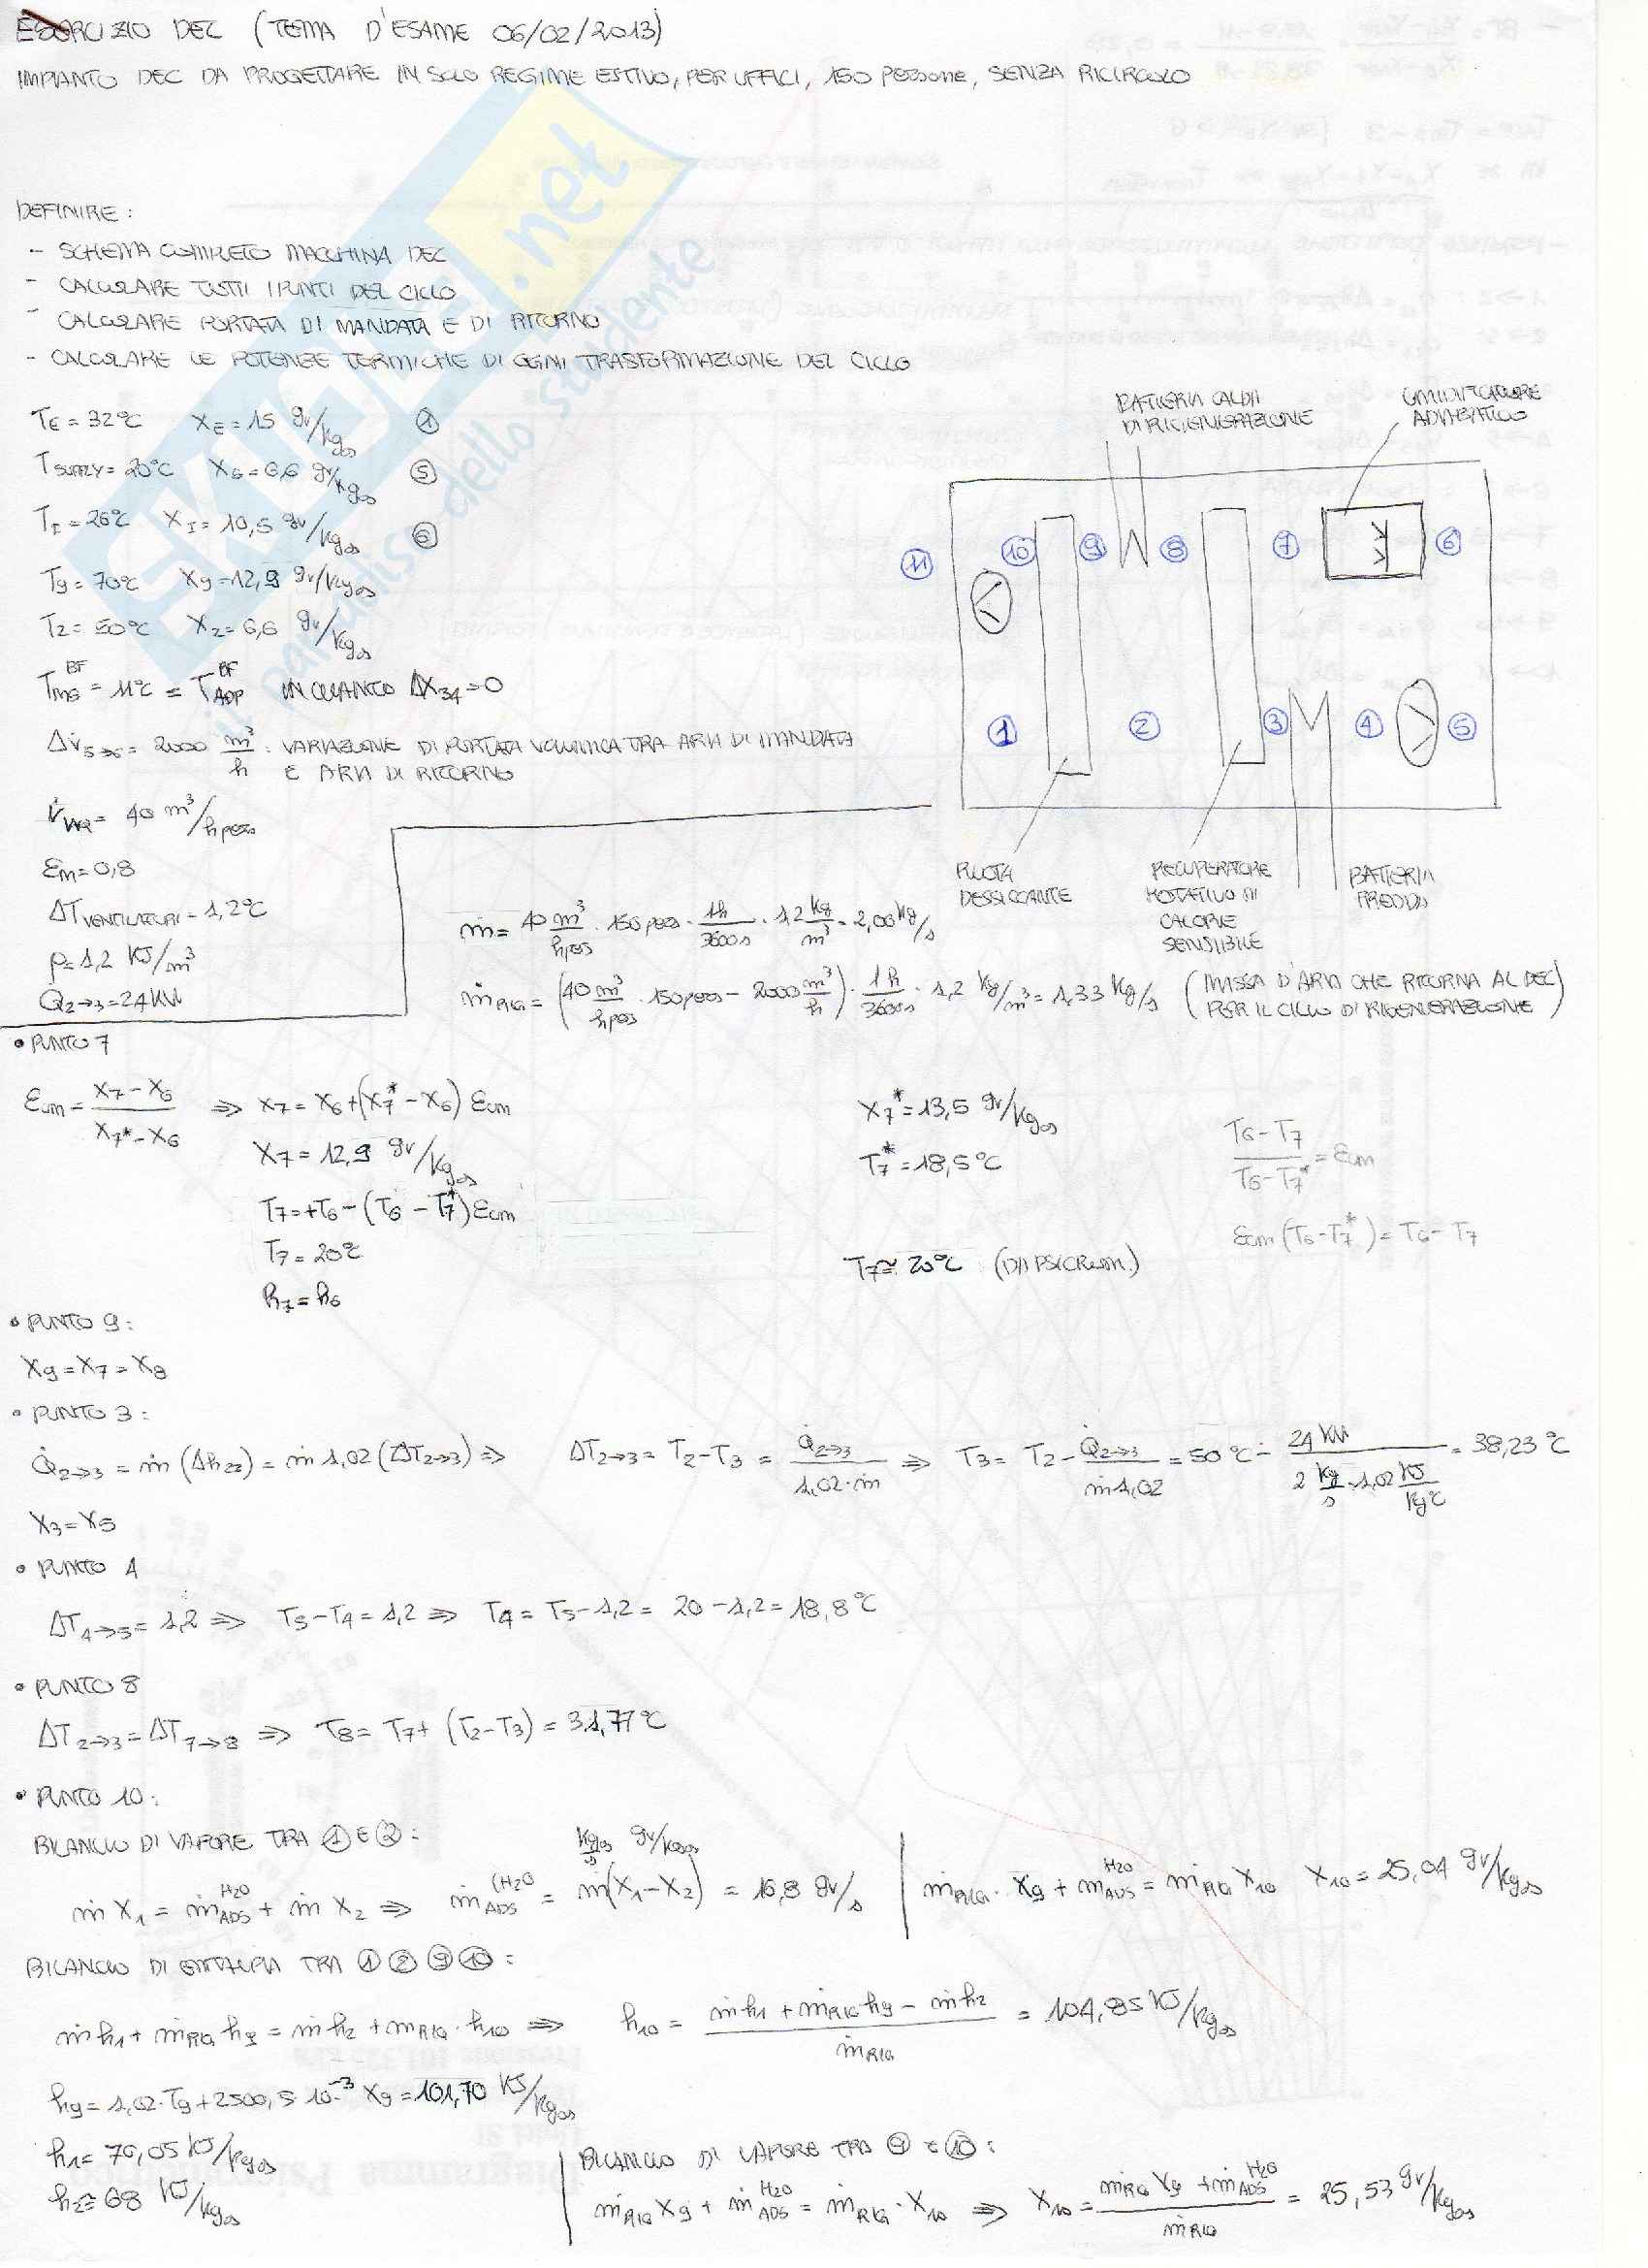 ESERCIZIO DEC (TEMA D'ESAME 06/02/2013)
IMPIANTO DEC DA PROGETTARE IN SOLO REGIME ESTIVO, PER UFFICI, 150 PERSONE, SENZA RICIRCOLO
DEFINIRE:
- SCHEMA COMPLETO MACCHINA DEC
- CALCOLARE TUTTI I PUNTI DEL CICLO
- CALCOLARE PORTATA DI MANDATA E DI RITORNO
- CALCOLARE LE POTENZE TERMICHE DI OGNI TRASFORMAZIONE DEL CICLO
SKUOLA.net
il paradiso dello studente
T_E = 32°C X_E = 15 gv/kgas ①
T_SUPPLY = 20°C X_5 = 6,6 gv/kgas ⑤
T_I = 26°C X_I = 10,5 gv/kgas ⑥
T9 = 70°C X9 = 12,9 gv/kgas
T2 = 50°C X2 = 6,6 gv/kgas
T_mS^BF = 11°C = T_ADP^BF IN QUANTO ΔX34 = 0
ΔV̇5→6 = 2000 m³/h : VARIAZIONE DI PORTATA VOLUMICA TRA ARIA DI MANDATA
E ARIA DI RITORNO
V̇_IAQ = 40 m³/h pers
ε_m = 0,8
ΔT_VENTILATORI = 1,2°C
ρ = 1,2 KJ/m³
Q2→3 = 24 KW
BATTERIA CALDA
DI RIGENERAZIONE
UMIDIFICATORE
ADIABATICO
⑪ ⑩ ⑨ ⑧ ⑦ ⑥
① ② ③ ④ ⑤
RUOTA
DESSICCANTE
RECUPERATORE
ROTATIVO DI
CALORE
SENSIBILE
BATTERIA
FREDDA
ṁ = 40 m³/h pers · 150 pers · 1h/3600s · 1,2 kg/m³ = 2,00 kg/s
ṁ_RIG = (40 m³/h pers · 150 pers - 2000 m³/h) · 1h/3600s · 1,2 kg/m³ = 1,33 kg/s (MASSA D'ARIA CHE RITORNA AL DEC
PER IL CICLO DI RIGENERAZIONE)
• PUNTO 7
ε_um = (X7 - X6)/(X7* - X6) ⇒ X7 = X6 + (X7* - X6) ε_um
X7 = 12,9 gv/kgas
T7 = +T6 - (T6 - T7*) ε_um
T7 = 20°C
h7 = h6
X7* = 13,5 gv/kgas
T7* = 18,5°C
T7 ≈ 20°C (DA PSICROM.)
(T6 - T7)/(T6 - T7*) = ε_um
ε_um (T6 - T7*) = T6 - T7
• PUNTO 9:
X9 = X7 = X8
• PUNTO 3:
Q̇2→3 = ṁ (Δh23) = ṁ 1,02 (ΔT2→3) ⇒ ΔT2→3 = T2 - T3 = Q̇2→3/(1,02·ṁ) ⇒ T3 = T2 - Q̇2→3/(ṁ 1,02) = 50°C - 24 KW/(2 kg/s · 1,02 KJ/kg°C) = 38,23°C
X3 = X5
• PUNTO 4
ΔT4→5 = 1,2 ⇒ T5 - T4 = 1,2 ⇒ T4 = T5 - 1,2 = 20 - 1,2 = 18,8°C
• PUNTO 8
ΔT2→3 = ΔT7→8 ⇒ T8 = T7 + (T2 - T3) = 31,77°C
• PUNTO 10:
BILANCIO DI VAPORE TRA ① E ②:
ṁ X1 = ṁ_ADS^H2O + ṁ X2 ⇒ ṁ_ADS^(H2O = ṁ(X1 - X2) = 16,8 gv/s
kgas/s gv/kgas
ṁ_RIG · X9 + ṁ_ADS^H2O = ṁ_RIG X10 X10 = 25,04 gv/kgas
BILANCIO DI ENTALPIA TRA ① ② ⑨ ⑩:
ṁh1 + ṁ_RIG h9 = ṁh2 + ṁ_RIG · h10 ⇒ h10 = (ṁh1 + ṁ_RIG h9 - ṁh2)/ṁ_RIG = 104,85 KJ/kgas
h9 = 1,02·T9 + 2500,5·10⁻³ X9 = 101,70 KJ/kgas
h1 = 70,05 KJ/kgas
h2 ≅ 68 KJ/kgas
BILANCIO DI VAPORE TRA ⑨ E ⑩:
ṁ_RIG X9 + ṁ_ADS^H2O = ṁ_RIG · X10 ⇒ X10 = (ṁ_RIG X9 + ṁ_ADS^H2O)/ṁ_RIG = 25,53 gv/kgas